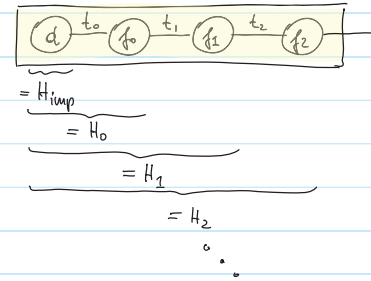 d t₀ f₀ t₁ f₁ t₂ f₂
= Himp
= H₀
= H₁
= H₂